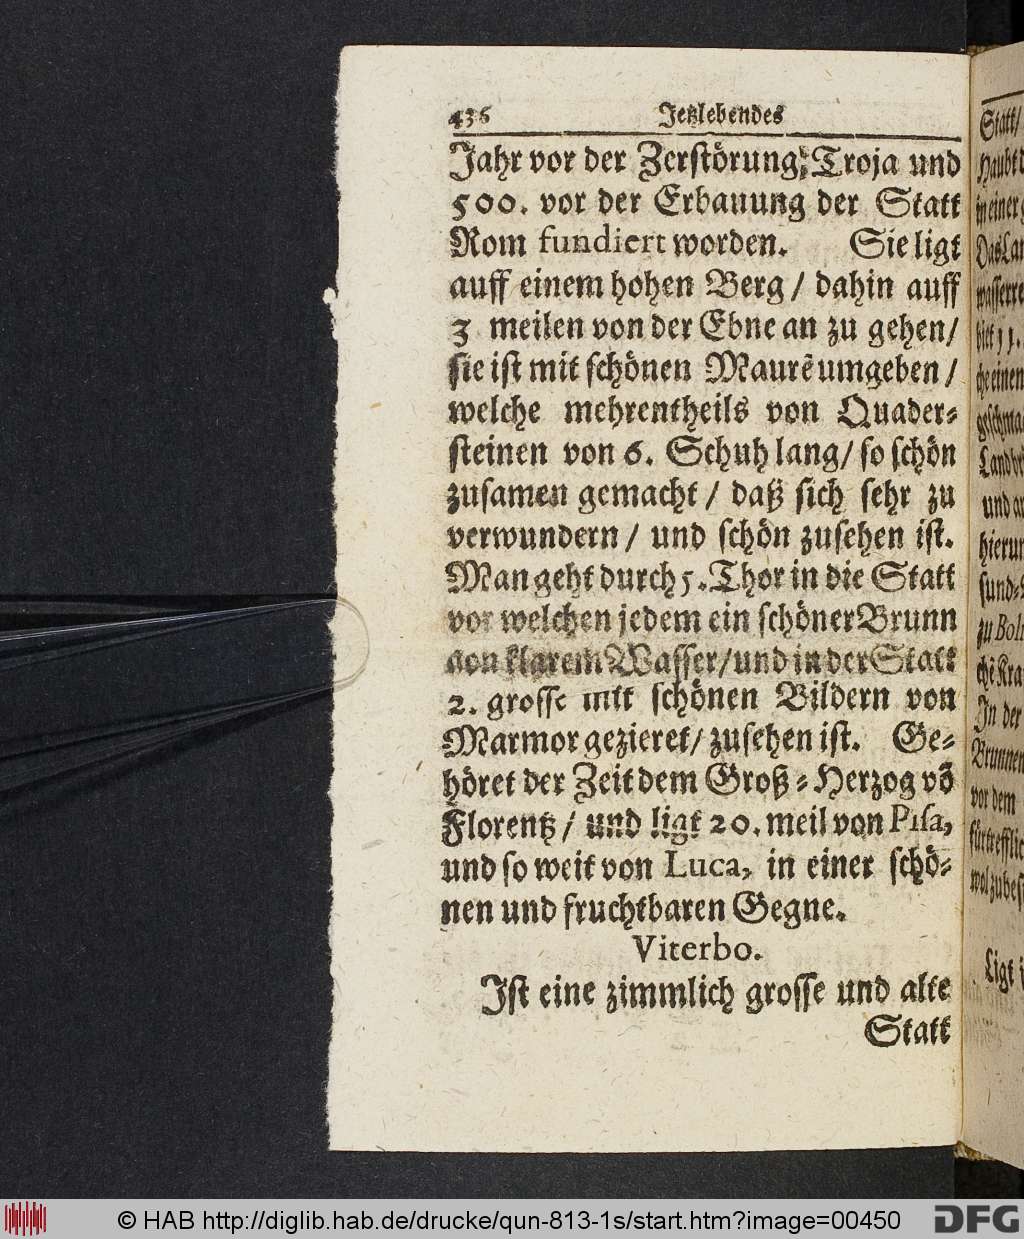 436 Jetzlebendes
Jahr vor der Zerstörung Troja und
500. vor der Erbauung der Statt
Rom fundiert worden. Sie ligt
auff einem hohen Berg / dahin auff
3 meilen von der Ebne an zu gehen/
sie ist mit schönen Maurẽ umgeben /
welche mehrentheils von Quader-
steinen von 6. Schuh lang/ so schön
zusamen gemacht / daß sich sehr zu
verwundern / und schön zusehen ist.
Man geht durch 5. Thor in die Statt
vor welchen jedem ein schöner Brunn
von klarem Wasser/und in der Statt
2. grosse mit schönen Bildern von
Marmor gezieret/ zusehen ist. Ge-
höret der Zeit dem Groß-Herzog võ
Florentz / und ligt 20. meil von Pisa,
und so weit von Luca, in einer schö-
nen und fruchtbaren Gegne.
Viterbo.
Ist eine zimmlich grosse und alte
Statt
Statt/
in einer
Das Lan
che einen
und an
hierun
zu Bol
In der
Brunnen
vor dem
fürtrefflic
Ligt
© HAB http://diglib.hab.de/drucke/qun-813-1s/start.htm?image=00450
DFG